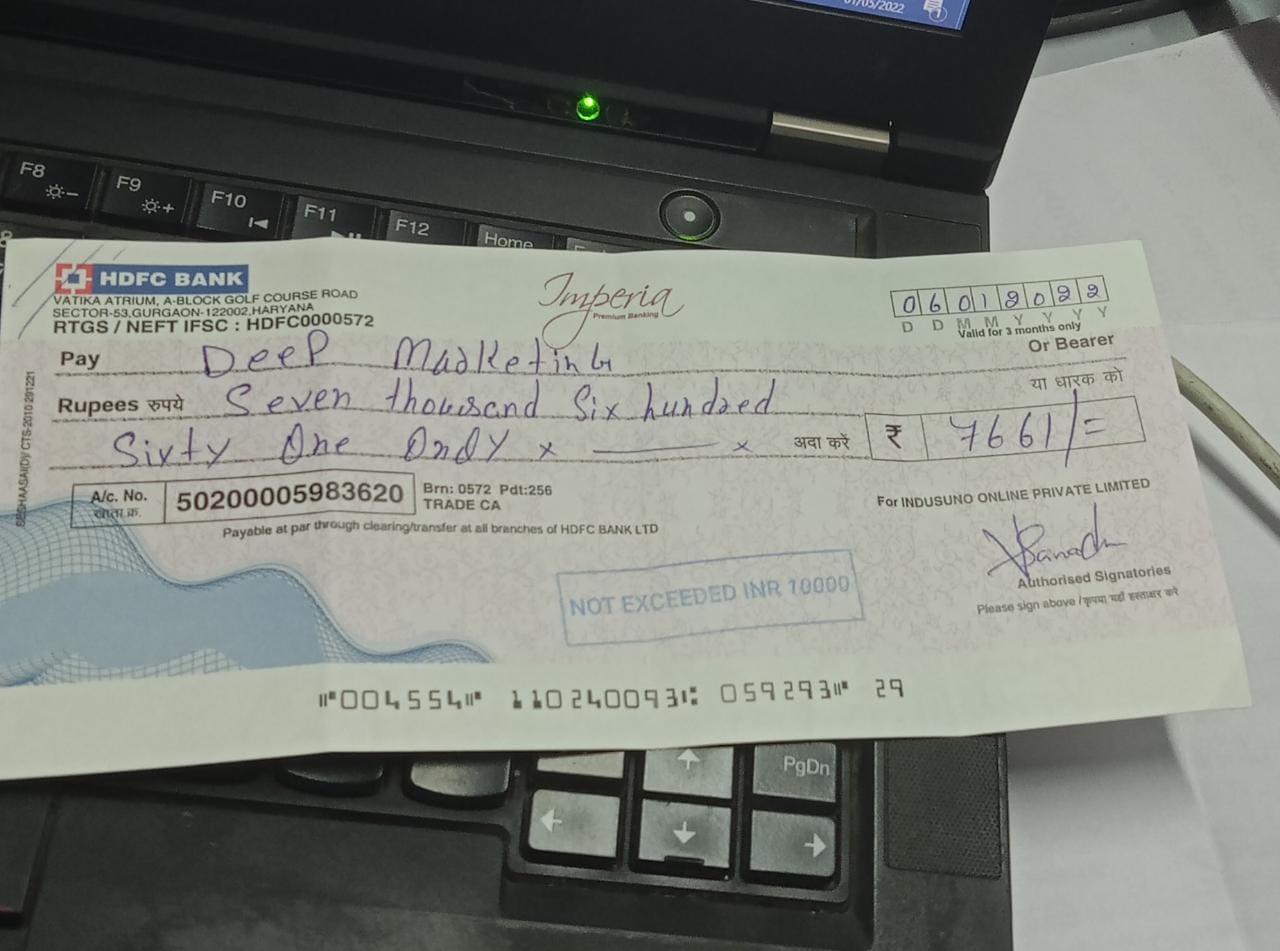 01/05/2022
1
F8
F9
F10
F11
F12
Home
HDFC BANK
VATIKA ATRIUM, A-BLOCK GOLF COURSE ROAD
SECTOR-53,GURGAON-122002,HARYANA
RTGS / NEFT IFSC : HDFC0000572
Imperia
Premium Banking
06012022
D D M M Y Y Y Y
Valid for 3 months only
Pay Deep Marketing Or Bearer
या धारक को
Rupees रुपये Seven thousand Six hundred
Sixty One Only x ——— x अदा करें ₹ 7661/=
A/c. No. 50200005983620 Brn: 0572 Pdt:256
खाता क्र. TRADE CA
Payable at par through clearing/transfer at all branches of HDFC BANK LTD
For INDUSUNO ONLINE PRIVATE LIMITED
Authorised Signatories
Please sign above / कृपया यहाँ हस्ताक्षर करे
NOT EXCEEDED INR 10000
⑈004554⑈ 110240093⑆ 059293⑈ 29
PgDn